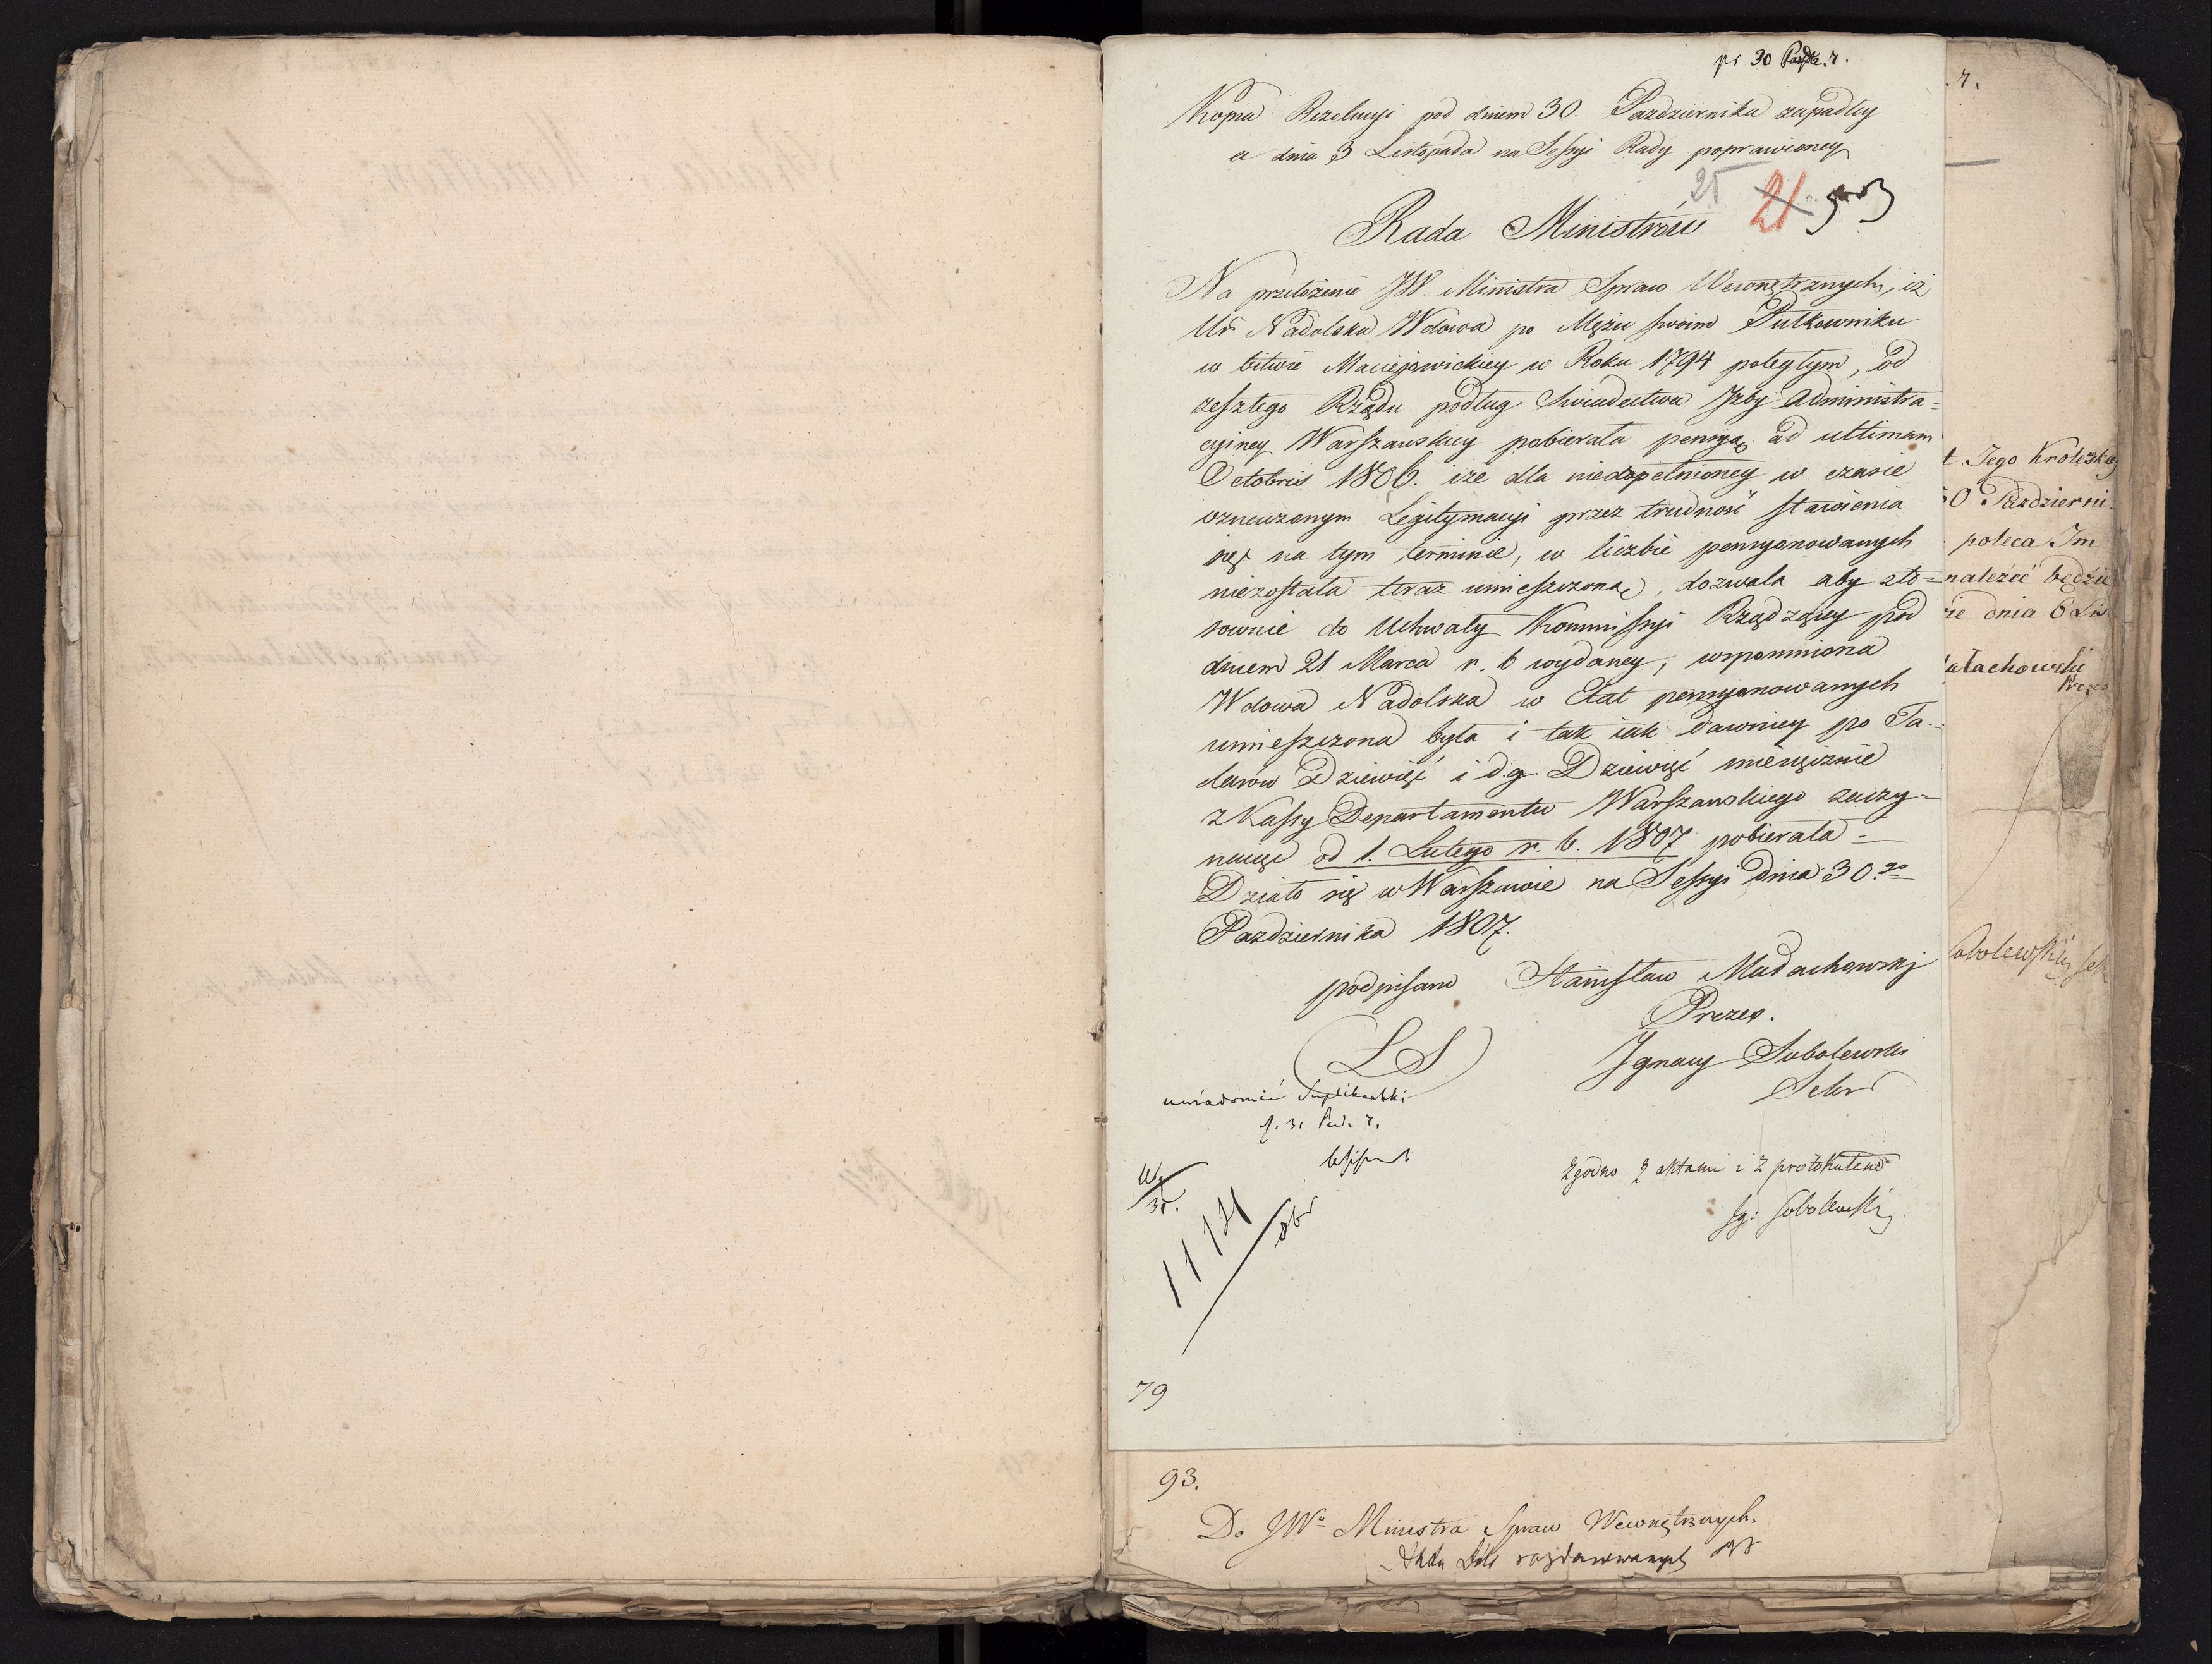 pr 30 Paźdz. r.
Kopia Rezolucyi pod dniem 30. Pazdziernika zapadłey
a dnia 3 Listopada na Sessyi Rady poprawioney
25 21
Rada Ministrów
Na przełożenie JW. Ministra Spraw Wewnętrznych, iż
Ur Nadolska Wdowa po Mężu swoim Pułkowniku
w bitwie Macieiowickiey w Roku 1794 poległym, od
zeszłego Rządu podług Swiadectwa Jzby Administra=
cyiney Warszawskiey pobierała pensyą ad ultimam
Octobris 1806. iże dla niedopełnioney w czasie
oznaczonym Legitymacyi przez trudność stawienia
się na tym terminie, w liczbie pensyonowanych
niezostała teraz umieszczoną, dozwala aby sto=
sownie do Uchwały Kommissyi Rządzącey pod
dniem 21 Marca r. b wydaney, wspomniona
Wdowa Nadolska w Etat pensyonowanych
umieszczona była i tak iak dawniey po Ta=
larów Dziewięć i dg. Dziewięć miesięcznie
z Kassy Departamentu Warszawskiego zaczy=
naiąc od 1. Lutego r. b. 1807 pobierała =
Działo się w Warszawie na Sessyi dnia 30.go
Pazdziernika 1807.
podpisano Stanisław Małachowski
Prezes.
LS
Jgnacy Sobolewski
Sekr
uwiadomić Suplikantki
Zgodno z aktami i z protokułem
Jg: Sobolewski
79
93.
Do JWo Ministra Spraw Wewnętrznych.
t Jego Krolewskiey
30 Pazdzierni
poleca Jm
należeć będzie
ie dnia 6 Lis
ałachowski
Prezes
obolewski Sek